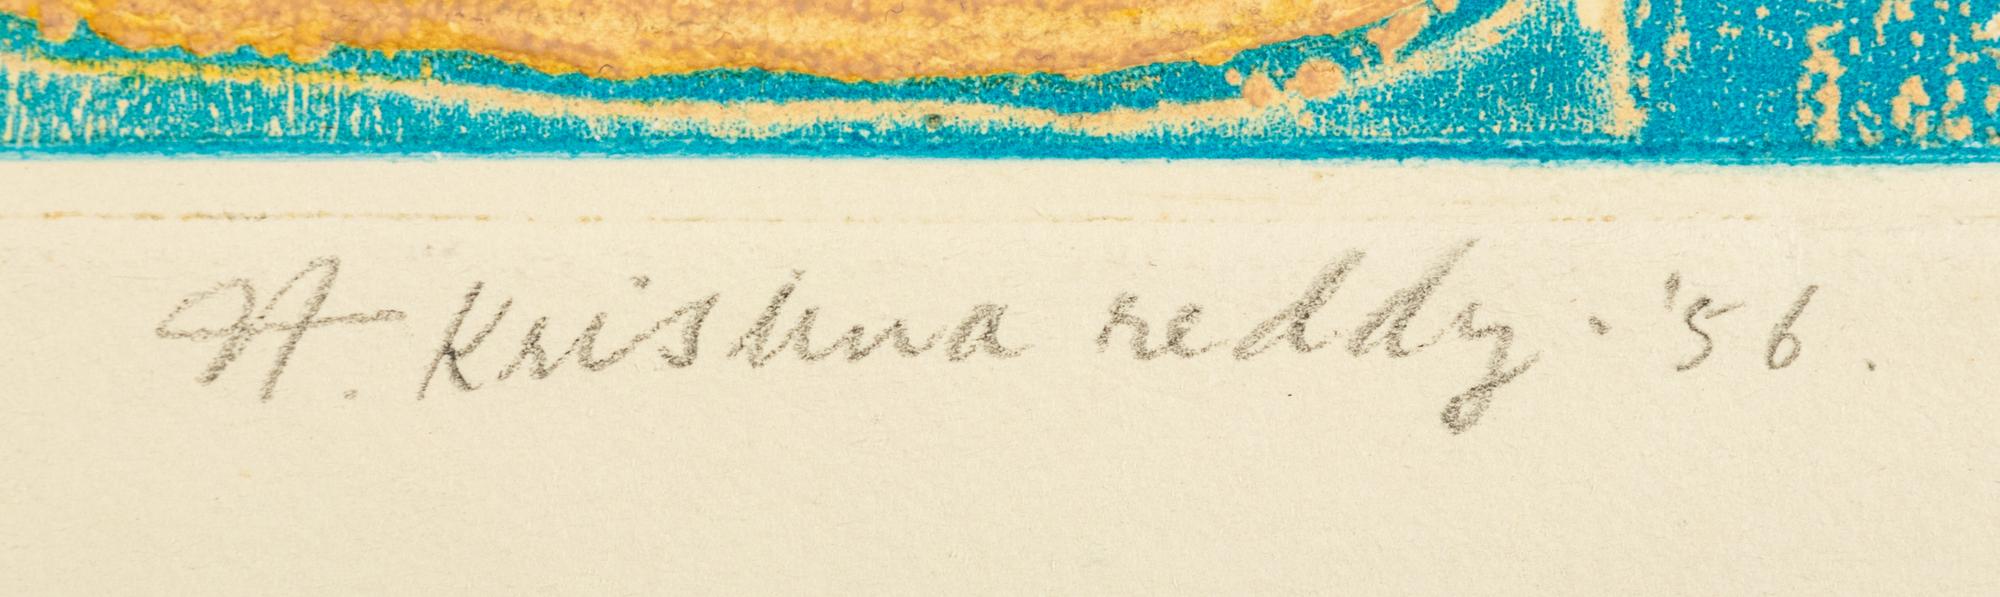 N. Krishna reddy . '56.